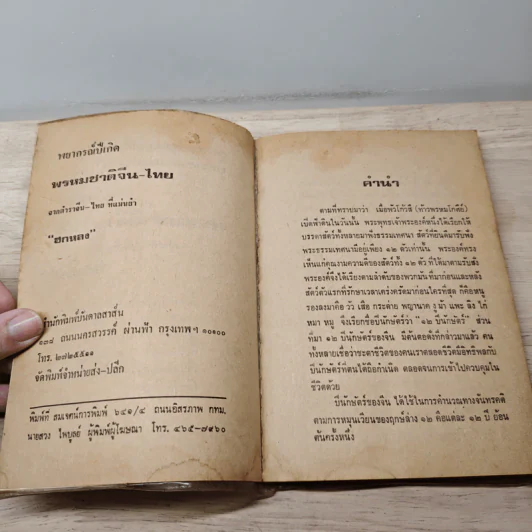 พยากรณ์ปีเกิด
พรหมชาติจีน-ไทย
จากตำราจีน-ไทย ที่แม่นยำ
"ฮกหลง"
สำนักพิมพ์บันดาลสาส์น
๑๓๙ ถนนนครสวรรค์ ผ่านฟ้า กรุงเทพ ฯ ๑๐๑๐๐
โทร. ๒๘๒๕๕๑๑
จัดพิมพ์จำหน่ายส่ง-ปลีก
พิมพ์ที่ สมเจตน์การพิมพ์ ๖๔๑/๔ ถนนอิสรภาพ กทม.
นายสวง ไพบูลย์ ผู้พิมพ์ผู้โฆษณา โทร. ๔๖๕-๗๙๖๐
คำนำ
ตามที่ทราบมาว่า เมื่อหัวโก้วสี (ท้าวพรหมโกดีย์)
เบิ่ดฟ้าดินในวันนั้น พระพุทธเจ้าพระองค์หนึ่งได้เรียกให้
บรรดาสัตว์ทั้งหลายมาฟังธรรมเทศนา สัตว์ที่ยินดีมารับฟัง
พระธรรมเทศนามีอยู่เพียง ๑๒ ตัวเท่านั้น พระองค์ทรง
เห็นแก่คุณงามความดีของสัตว์ทั้ง ๑๒ ตัว ที่ได้มาตามรับสั่ง
พระองค์จึงได้เรียงตามลำดับของพวกมันที่มาก่อนและหลัง
สัตว์ตัวแรกที่รักษาเวลาเคร่งครัดมาก่อนใครที่สุด ก็คือหนู
รองลงมาคือ วัว เสือ กระต่าย พญานาค งู ม้า แพะ ลิง ไก่
หมา หมู จึงเรียกชื่อปีนักษัตร์ว่า "๑๒ ปีนักษัตร์" ส่วน
ที่มา ๑๒ ปีนักษัตร์ของจีน มีต้นตอดังที่กล่าวมาแล้ว คน
ทั้งหลายเชื่อว่าชะตาชีวิตของคนเราตลอดชีวิตมีอิทธิพลกับ
ปีนักษัตร์ที่ตนได้ถือกำเนิด ตลอดจนการเข้าไปควบคุมใน
ชีวิตด้วย
ปีนักษัตร์ของจีน ได้ใช้ในการคำนวณทางจันทรคติ
ตามการหมุนเวียนของฤกษ์ล่าง ๑๒ คือแต่ละ ๑๒ ปี ย้อน
ต้นครั้งหนึ่ง